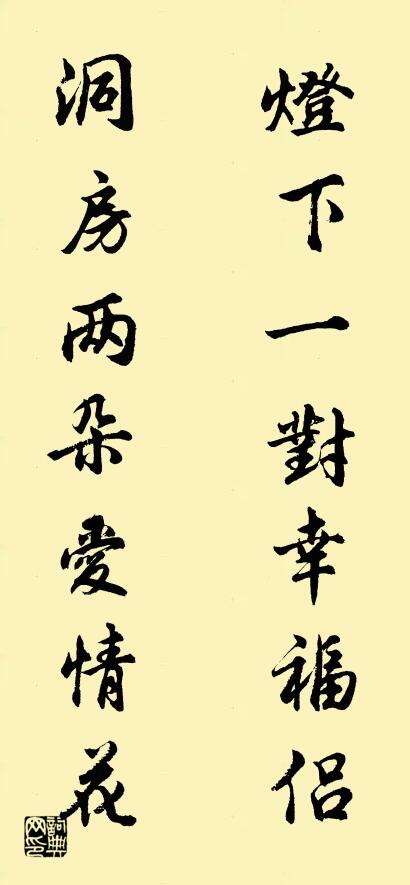 燈下一對幸福侶
洞房两朵愛情花
詞典网印